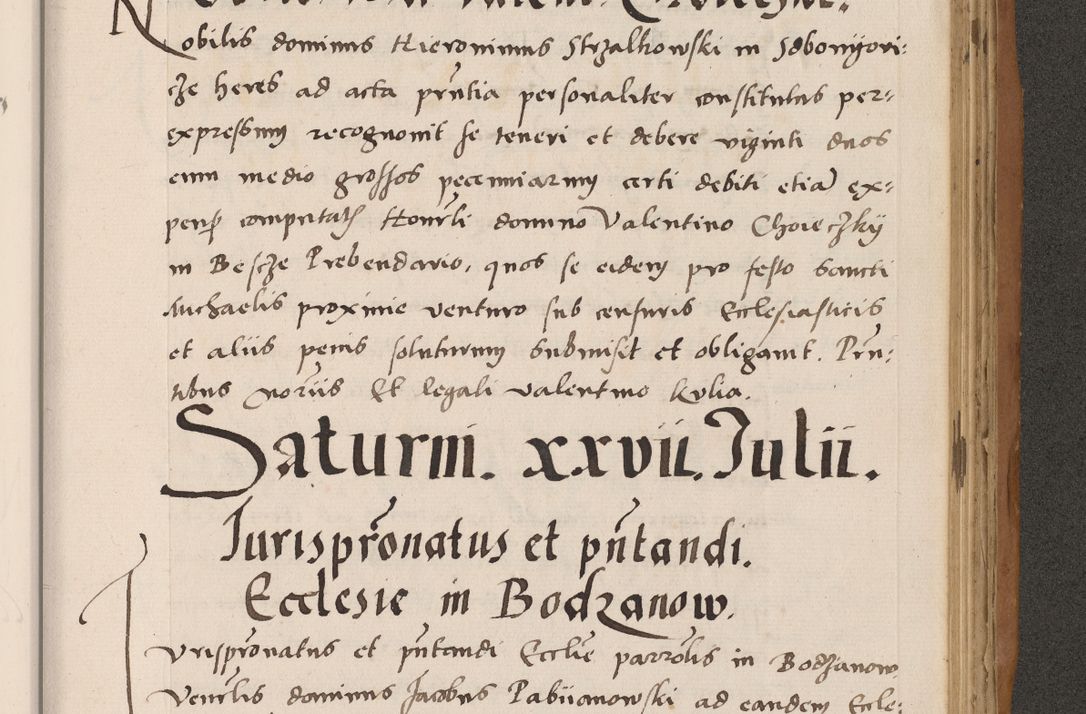 Nobilis dominus Hieronimus Strzalkowski in Sdbonyori:
cze heres ad acta pñtia personaliter constitutus per:
expressum recognovit se teneri et debere viginti duos
cum medio grossos pecuniarum certi debiti etiã ex:
pens computatis Honorli domino Valentino Choieczky
in Bescze Prebendario, quos se eidem pro festo Sancti
Michaelis proxime venturo sub censuris Ecclesiasticis
et aliis penis soluturum submisit et obligavit. Pñ:
tibus notriis Et legali Valentino Kulia.
Saturni. xxvii. Julii.
Jurisprõnatus et pñtandi.
Ecclesie in Bodzanow.
Jurisprõnatus et pñtandi Eccliẽ parrolis in Bodzanow
Venerlis dominus Jacobus Pabiianowski ad eandem Eccle: